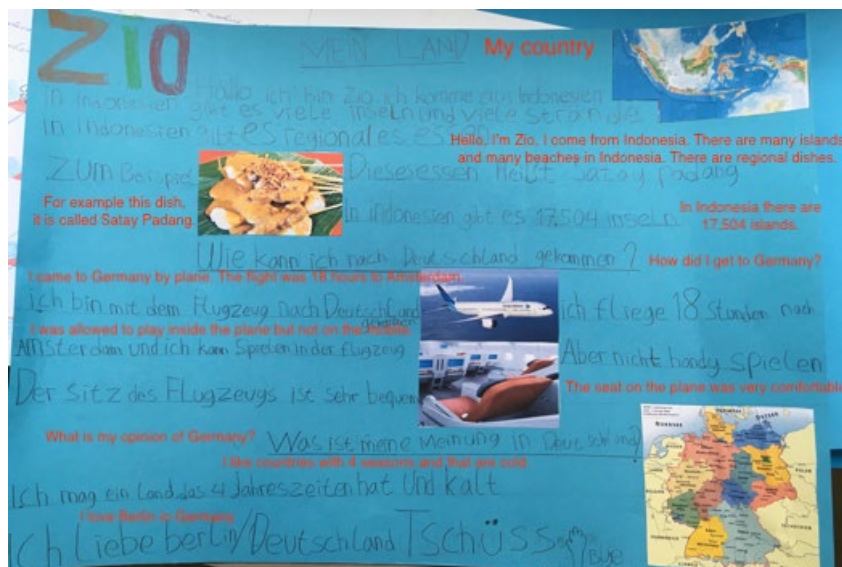 ZIO
MEIN LAND My country
Hallo ich bin Zio ich komme aus Indonesien
In Indonesien gibt es viele inseln und viele strände
In Indonesien gibt es regionales essen
Hello, I'm Zio, I come from Indonesia. There are many islands
and many beaches in Indonesia. There are regional dishes.
ZUM Beispiel
Dieses essen heißt Satay padang
For example this dish,
it is called Satay Padang.
In indonesien gibt es 17.504 inseln
In Indonesia there are
17,504 islands.
Wie kann ich nach Deutschland gekommen?
How did I get to Germany?
I came to Germany by plane. The flight was 18 hours to Amsterdam.
ich bin mit dem Flugzeug nach Deutschland gekommen
ich fliege 18 Stunden nach
I was allowed to play inside the plane but not on the mobile.
Amsterdam und ich kann spielen in der flugzeug
Aber nicht handy spielen
Der sitz des Flugzeugs ist sehr bequem
The seat on the plane was very comfortable
What is my opinion of Germany?
Was ist meine Meinung in Deutschland?
I like countries with 4 seasons and that are cold
Ich mag ein Land, das 4 Jahreszeiten hat und kalt
I love Berlin in Germany
Ich liebe berlin/Deutschland Tschüss
Bye